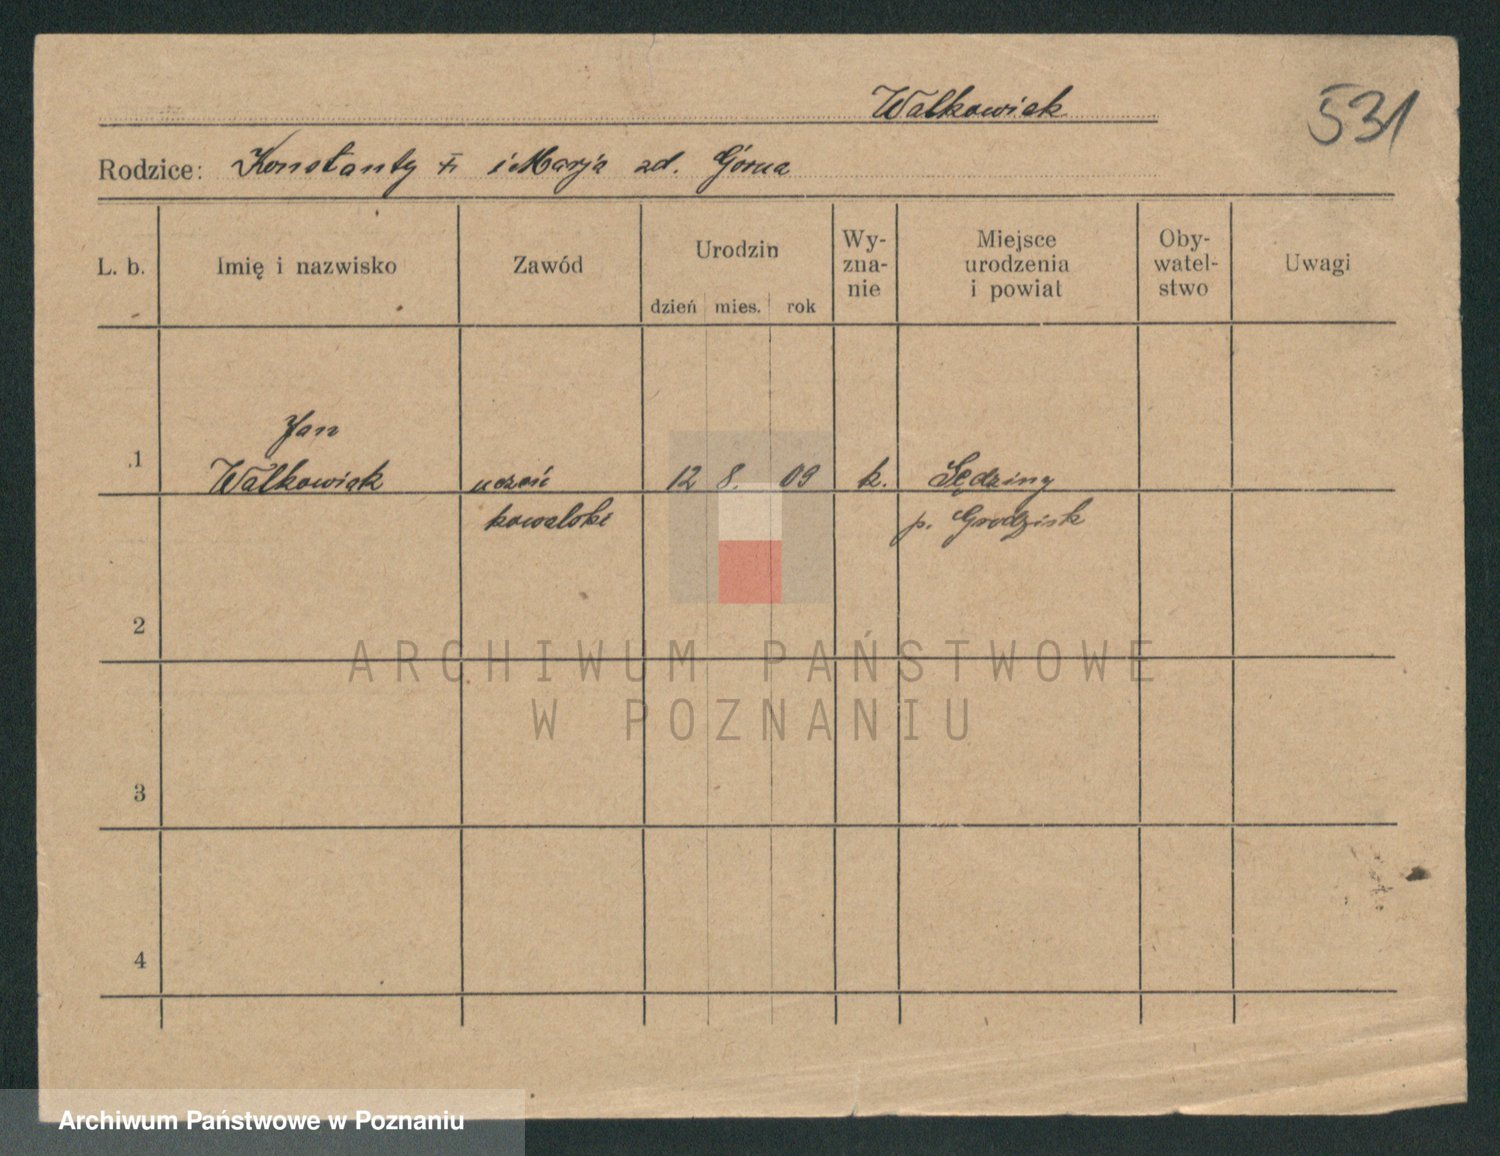 Walkowiak
531
Rodzice: Konstanty † i Marja zd. Górna
L. b.
Imię i nazwisko
Zawód
Urodzin
dzień mies. rok
Wy-
zna-
nie
Miejsce
urodzenia
i powiat
Oby-
watel-
stwo
Uwagi
1
Jan
Walkowiak
uczeń
kowalski
12 8. 09
k.
Sędziny
p. Grodzisk
2
3
4
ARCHIWUM PAŃSTWOWE
W POZNANIU
Archiwum Państwowe w Poznaniu